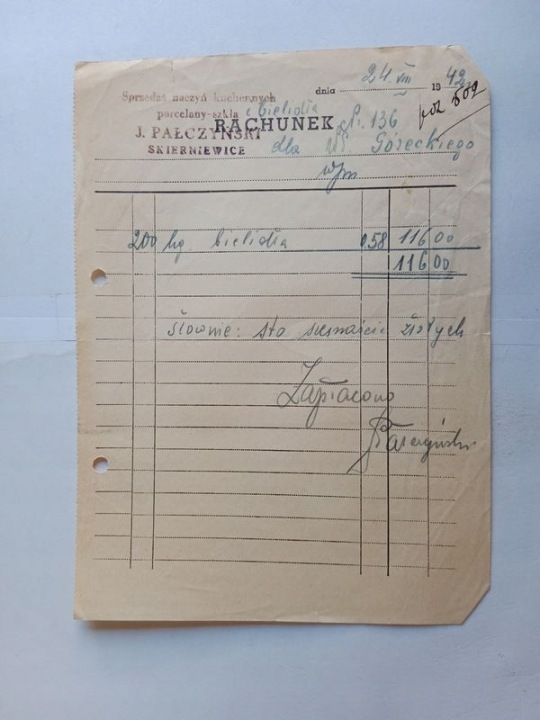 dnia 24. VIII 1942 r.
Sprzedaż naczyń kuchennych
porcelany-szkła i bielidła
poz 509
RACHUNEK
J. PAŁCZYŃSKI
SKIERNIEWICE
136
dla W. Góreckiego
200 kg bielidła 0.58 116 00
116 00
Słownie: sto szesnaście złotych
Zapłacono
Pałczyński